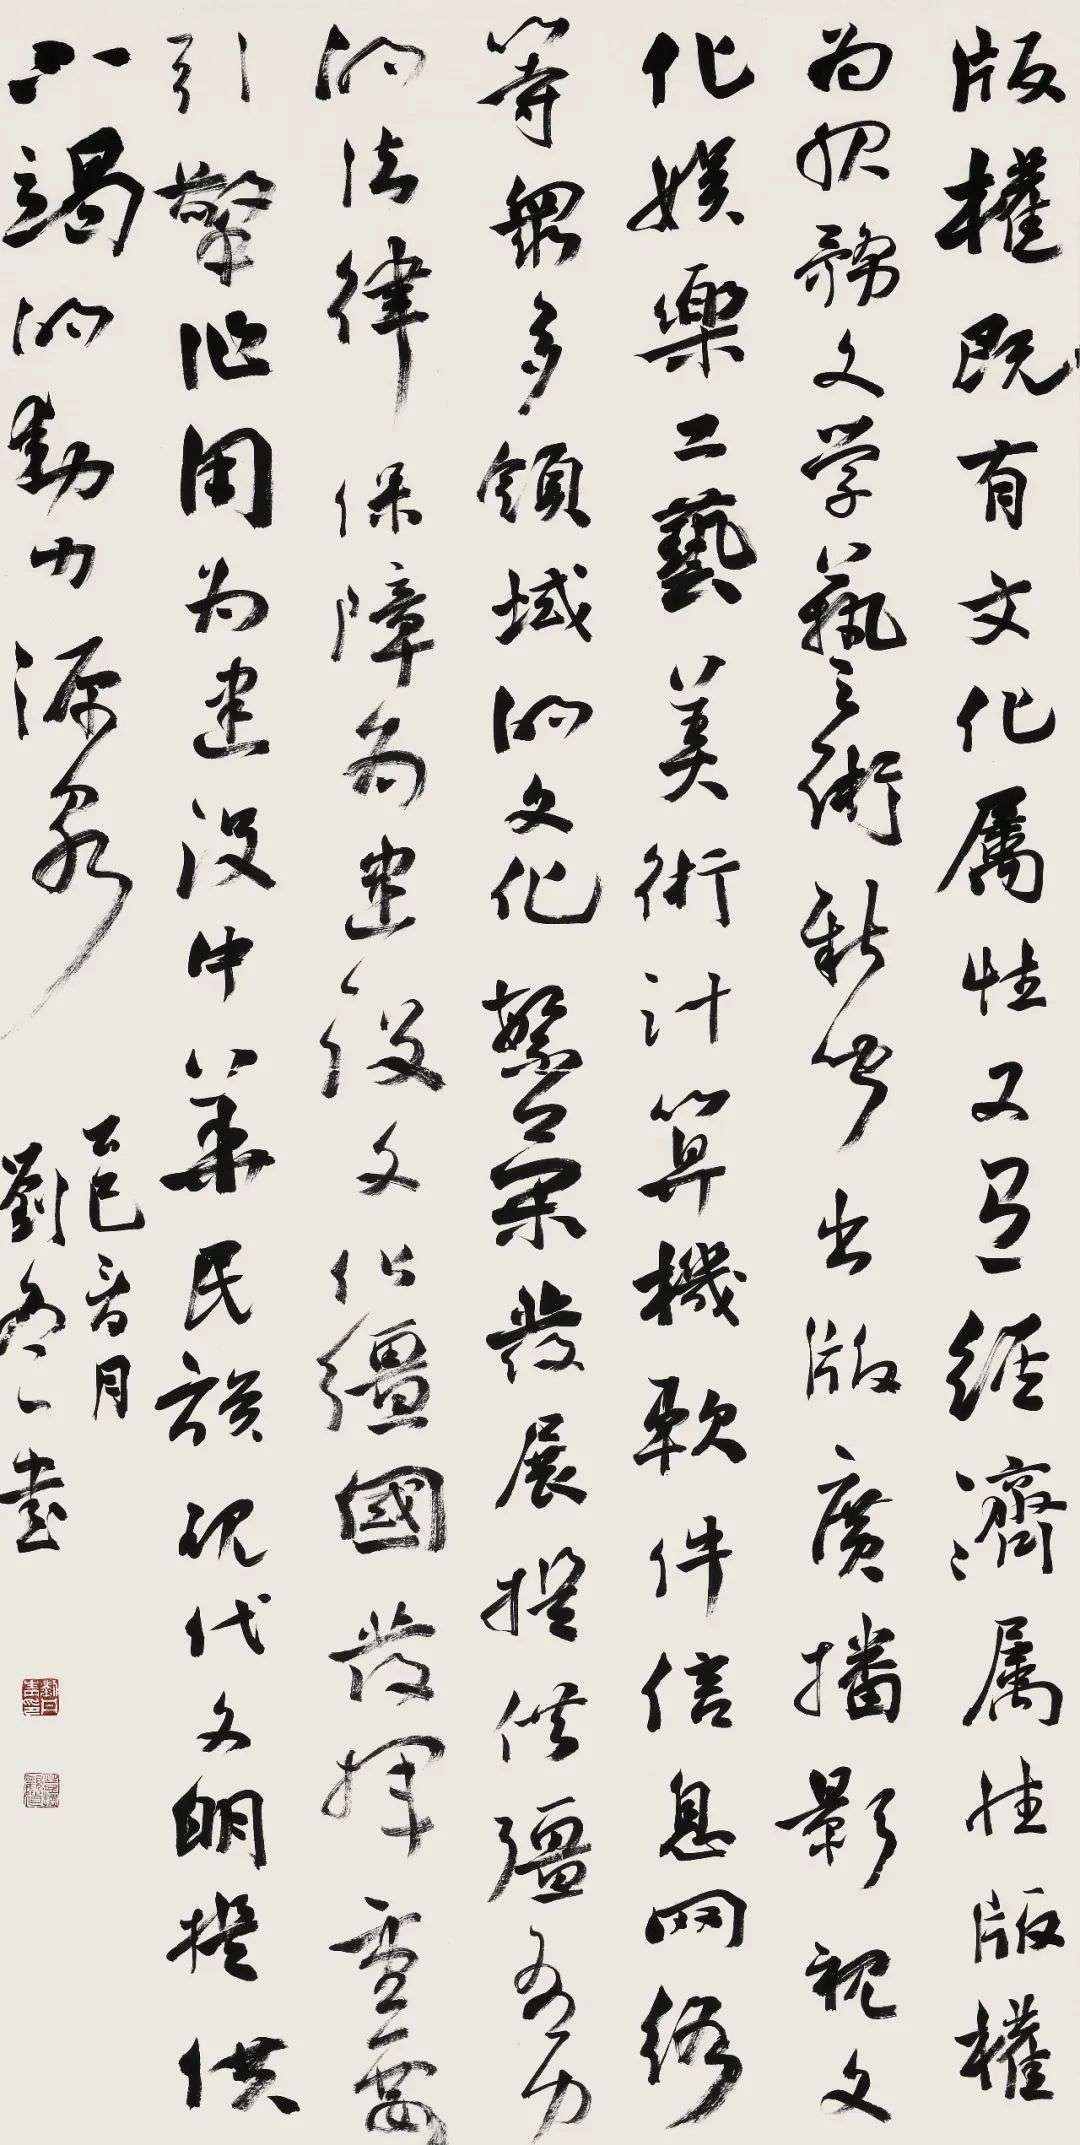 版權既有文化属性又具經濟属性版權
为服務文学藝術新闻出版廣播影視文
化娱樂工藝美術计算機軟件信息网络
等眾多領域的文化繁榮發展提供彊有力
的法律保障為建设文化彊國發揮重要
引擎作用为建设中華民族现代文明提供
不竭的動力源泉
乙巳春月
劉書